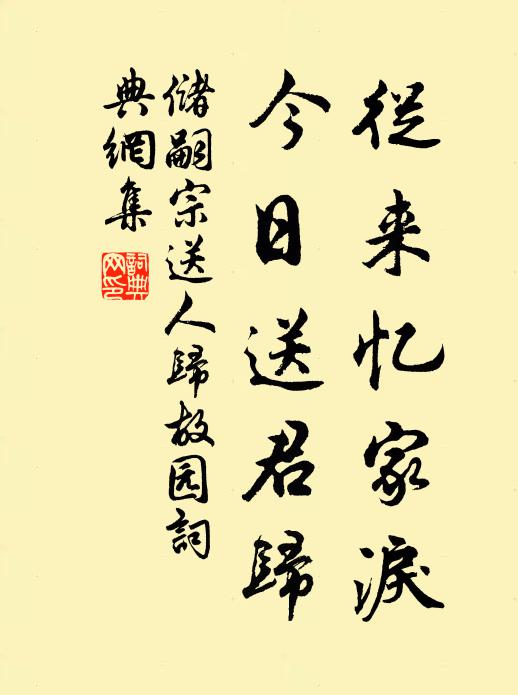 從来忆家淚
今日送君歸
儲嗣宗送人歸故园詞
典網集
詞典
网印